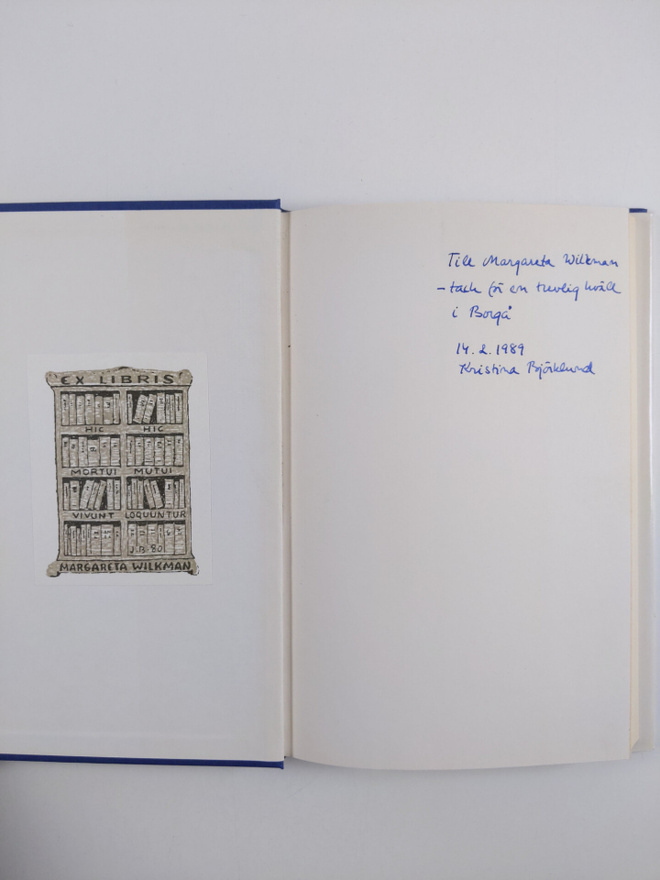 EX LIBRIS
HIC HIC
MORTUI MUTUI
VIVUNT LOQUUNTUR
J.B-80
MARGARETA WILKMAN
Till Margareta Wilkman
– tack för en trevlig kväll
i Borgå
14.2.1989
Kristina Björklund